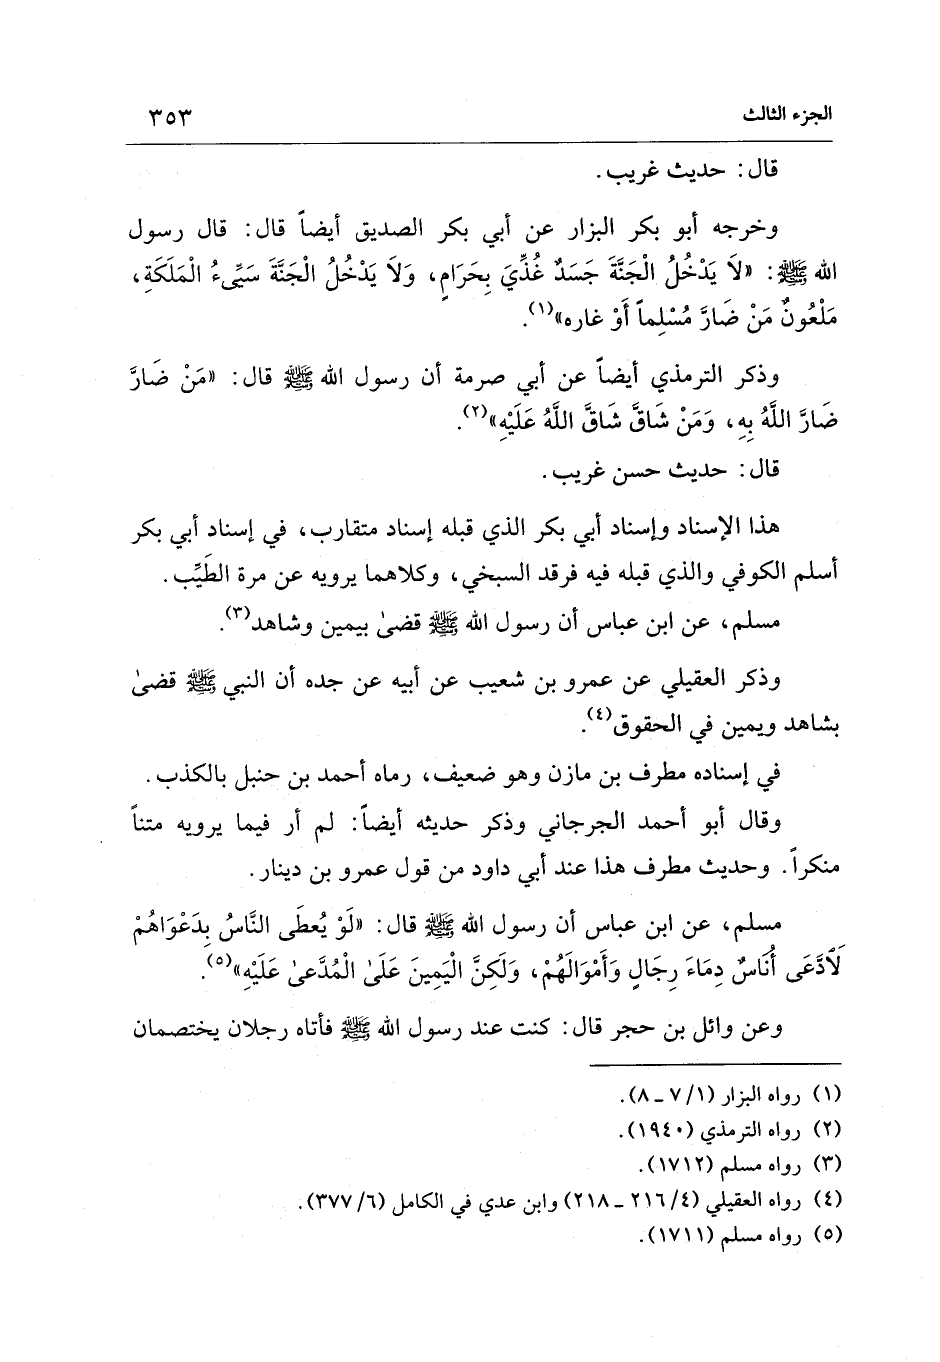 الجزء الثالث ٣٥٣
قال: حديث غريب.
وخرجه أبو بكر البزار عن أبي بكر الصديق أيضاً قال: قال رسول
الله ﷺ: «لاَ يَدْخُلُ الْجَنَّةَ جَسَدٌ غُذِّيَ بِحَرَامٍ، وَلاَ يَدْخُلُ الْجَنَّةَ سَيِّىءُ الْمَلَكَةِ،
مَلْعُونٌ مَنْ ضَارَّ مُسْلِماً أَوْ غاره»(١).
وذكر الترمذي أيضاً عن أبي صرمة أن رسول الله ﷺ قال: «مَنْ ضَارَّ
ضَارَّ اللَّهُ بِهِ، وَمَنْ شَاقَّ شَاقَّ اللَّهُ عَلَيْهِ»(٢).
قال: حديث حسن غريب.
هذا الإسناد وإسناد أبي بكر الذي قبله إسناد متقارب، في إسناد أبي بكر
أسلم الكوفي والذي قبله فيه فرقد السبخي، وكلاهما يرويه عن مرة الطَيِّب.
مسلم، عن ابن عباس أن رسول الله ﷺ قضىٰ بيمين وشاهد(٣).
وذكر العقيلي عن عمرو بن شعيب عن أبيه عن جده أن النبي ﷺ قضىٰ
بشاهد ويمين في الحقوق(٤).
في إسناده مطرف بن مازن وهو ضعيف، رماه أحمد بن حنبل بالكذب.
وقال أبو أحمد الجرجاني وذكر حديثه أيضاً: لم أر فيما يرويه متناً
منكراً. وحديث مطرف هذا عند أبي داود من قول عمرو بن دينار.
مسلم، عن ابن عباس أن رسول الله ﷺ قال: «لَوْ يُعطَى النَّاسُ بِدَعْوَاهُمْ
لَادَّعَى أُنَاسٌ دِمَاءَ رِجَالٍ وَأَمْوَالَهُمْ، وَلَكِنَّ الْيَمِينَ عَلَىٰ الْمُدَّعىٰ عَلَيْهِ»(٥).
وعن وائل بن حجر قال: كنت عند رسول الله ﷺ فأتاه رجلان يختصمان
(١) رواه البزار (١/ ٧ ـ ٨).
(٢) رواه الترمذي (١٩٤٠).
(٣) رواه مسلم (١٧١٢).
(٤) رواه العقيلي (٤/ ٢١٦ ـ ٢١٨) وابن عدي في الكامل (٦/ ٣٧٧).
(٥) رواه مسلم (١٧١١).